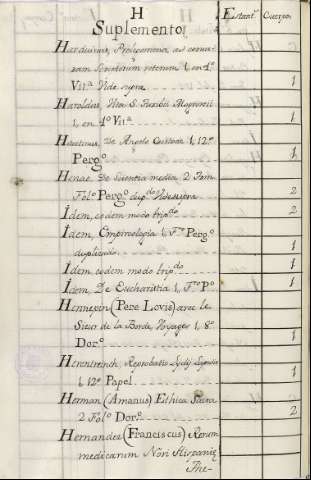 H
Suplemento. Estant.ᵉ Cuerpos
Harduinus, Prolegomena, ad censuram
Scriptorum veterum 1, en 4º
Vitª Vide supra 1
Haroldus, Vita S. Mogroveii
1, en 4º Vitª 1
De Angelo Custode 1, 12º
Pergº 1
Henao. De Scientia media, 2 Tom.
Folº Pergº dupdos Vide supra 2
Idem, eodem modo tripdo 2
Idem, Empireologia 1, Fº Pergº
duplicado 1
Idem eodem modo tripdo 1
Idem, De Eucharistia 1, Fº Pº 1
Hennepin (Pere Lovis) avec le
Sieur de la Borde, Voyages 1, 8º
Dorº 1
Reprobatio
1, 12º Papel 1
Herman (Amanus) Ethica Sacra
2 Folº Dorº 2
Hernandez (Franciscus) Rerum
medicarum Nov Hispaniæ
The-